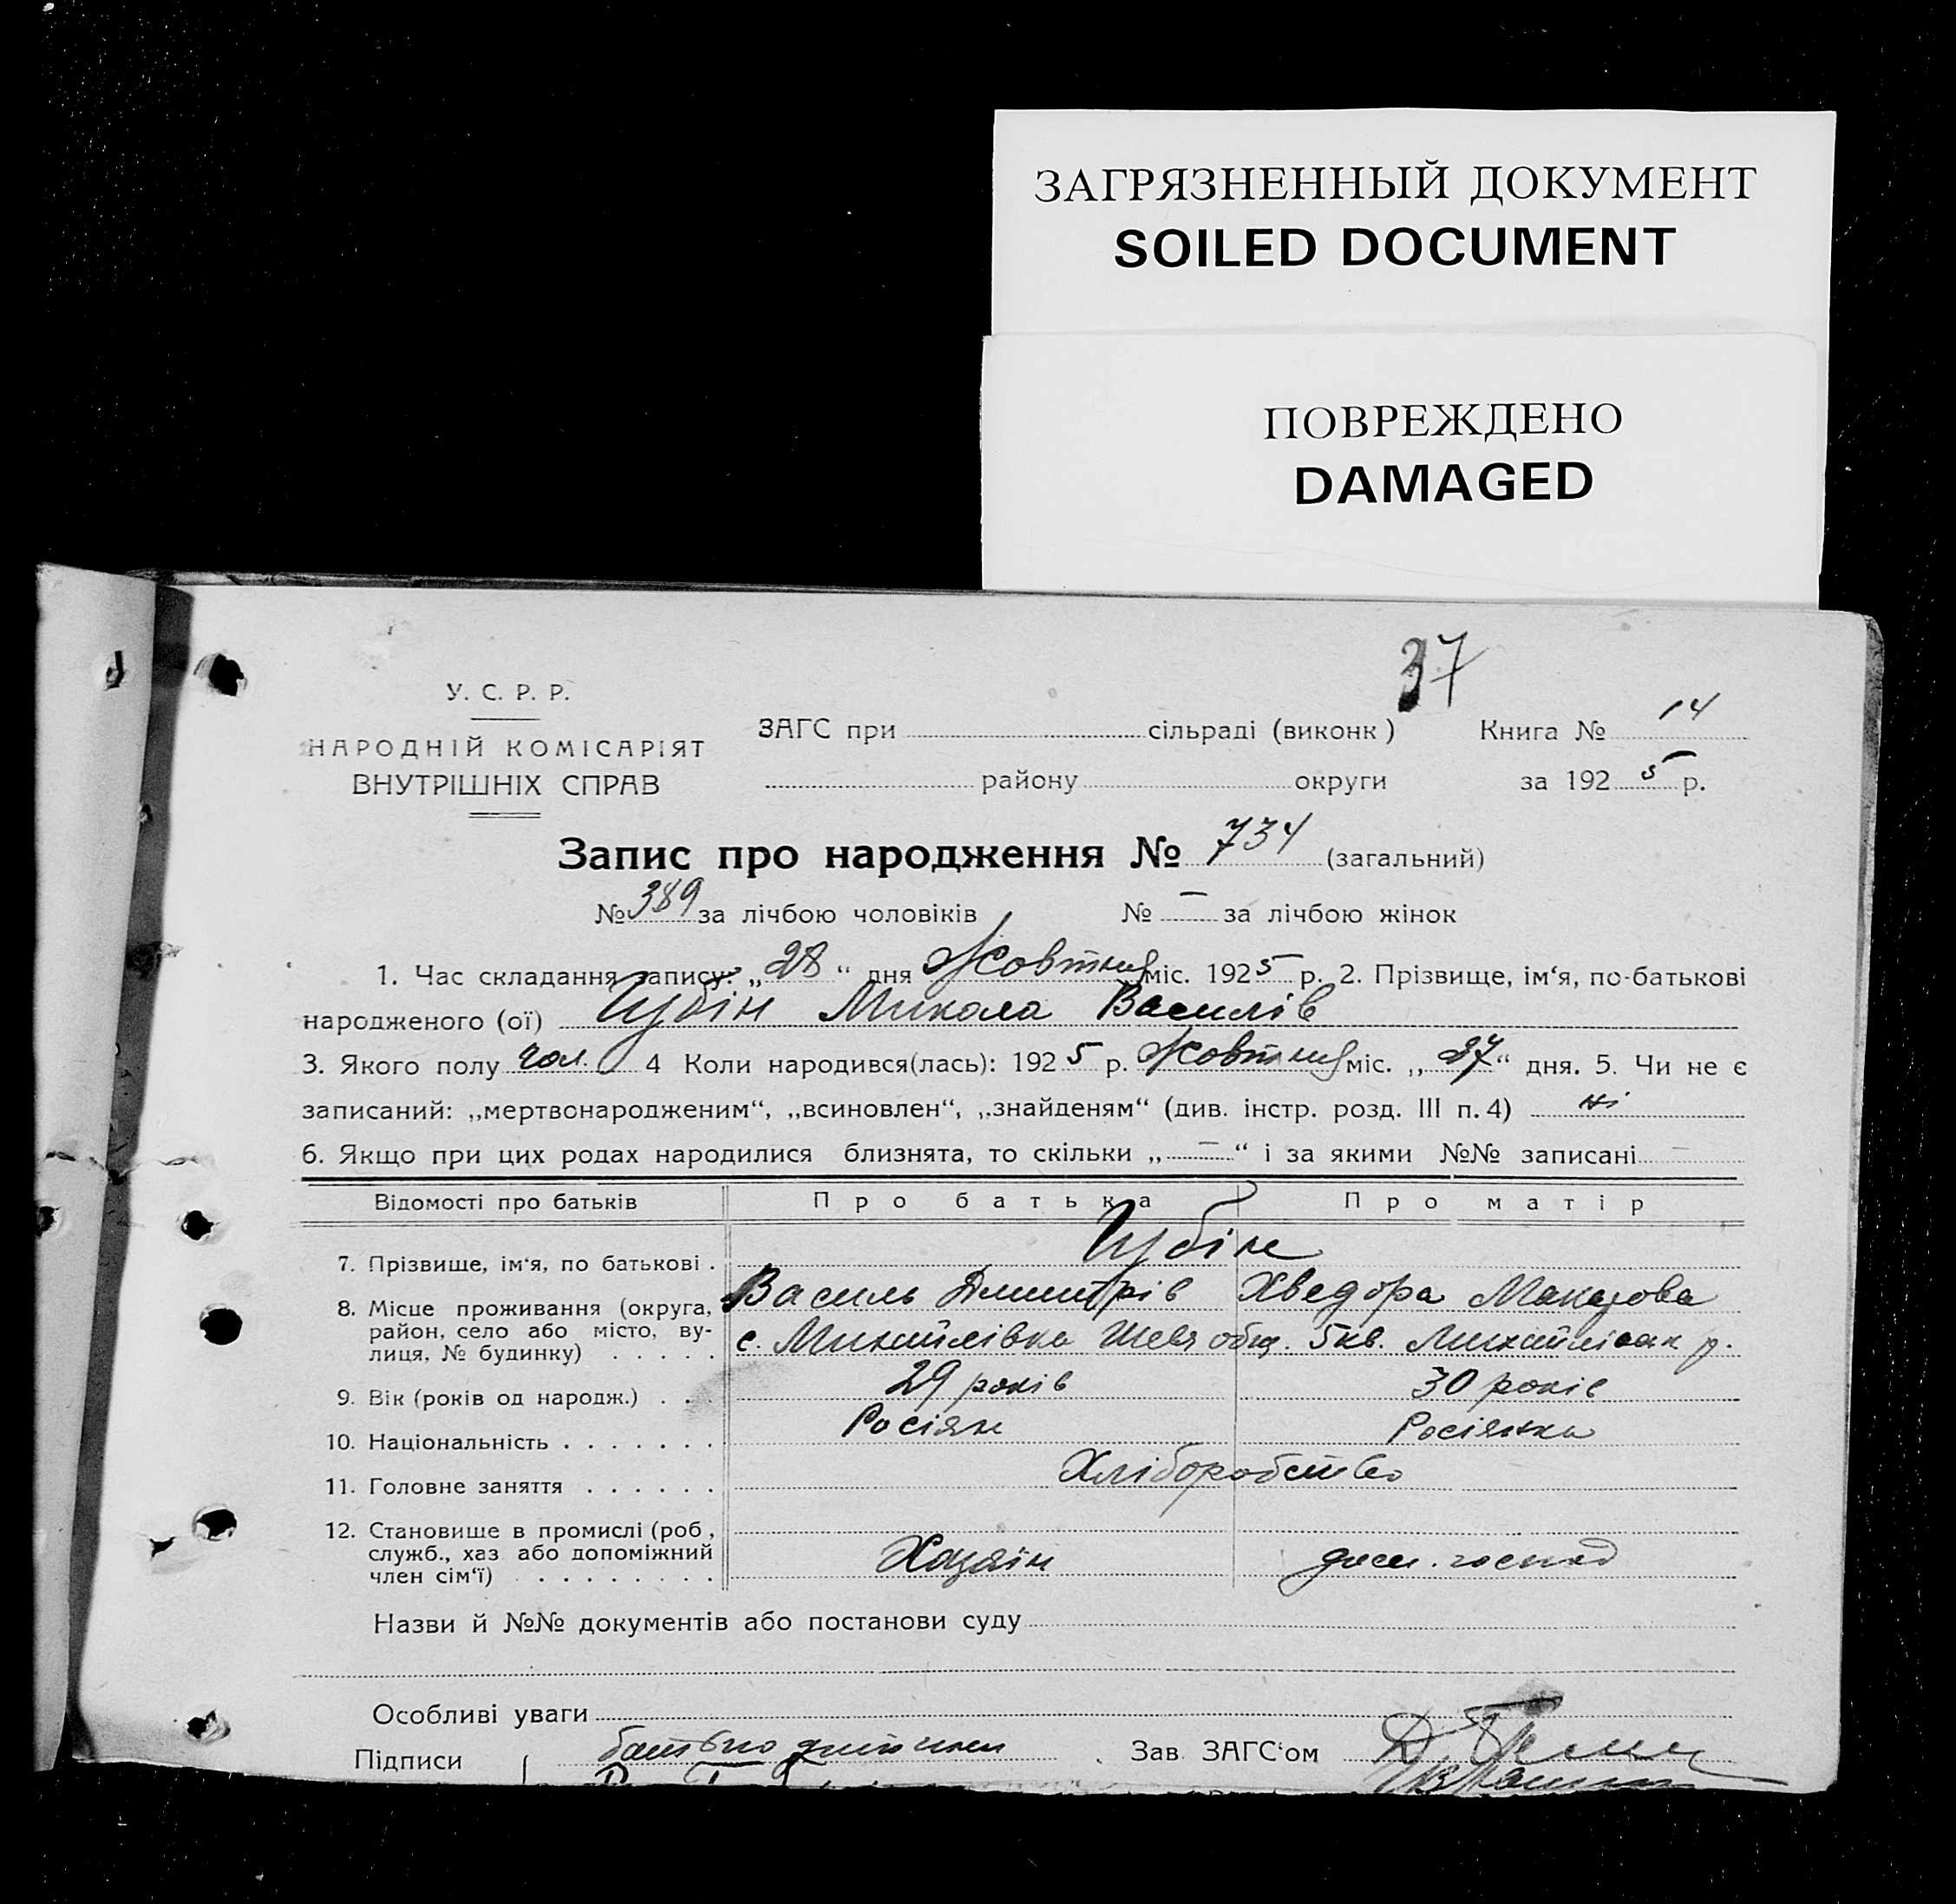 ЗАГРЯЗНЕННЫЙ ДОКУМЕНТ
SOILED DOCUMENT
ПОВРЕЖДЕНО
DAMAGED
37
У. С. Р. Р.
НАРОДНІЙ КОМІСАРІЯТ
ВНУТРІШНІХ СПРАВ
ЗАГС при сільраді (виконк) Книга № 14
району округи за 1925 р.
Запис про народження № 734 (загальний)
№ 389 за лічбою чоловіків № — за лічбою жінок
1. Час складання запису: „28“ дня Жовтня міс. 1925 р. 2. Прізвище, ім‘я, по-батькові
народженого (ої) Микола Василів
3. Якого полу чол. 4 Коли народився(лась): 1925 р. Жовтня міс. „27“ дня. 5. Чи не є
записаний: „мертвонародженим“, „всиновлен“, „знайденям“ (див. інстр. розд. III п. 4) ні
6. Якщо при цих родах народилися близнята, то скільки „—“ і за якими №№ записані —
Відомості про батьків Про батька Про матір
7. Прізвище, ім‘я, по батькові .
Василь Дмитрів Хведора Макарова
8. Місце проживання (округа,
район, село або місто, ву-
лиця, № будинку) . . . . . с. Михайлівка 5 кв. р.
9. Вік (років од народж.) . . . 29 років 30 років
10. Національність . . . . . . . Росіян Росіянка
11. Головне заняття . . . . . . Хліборобство
12. Становище в промислі (роб,
служб., хаз або допоміжний
член сім‘ї) . . . . . . . . Хазяїн дом. господ
Назви й №№ документів або постанови суду
Особливі уваги
Підписи батько дитини Зав. ЗАГС‘ом